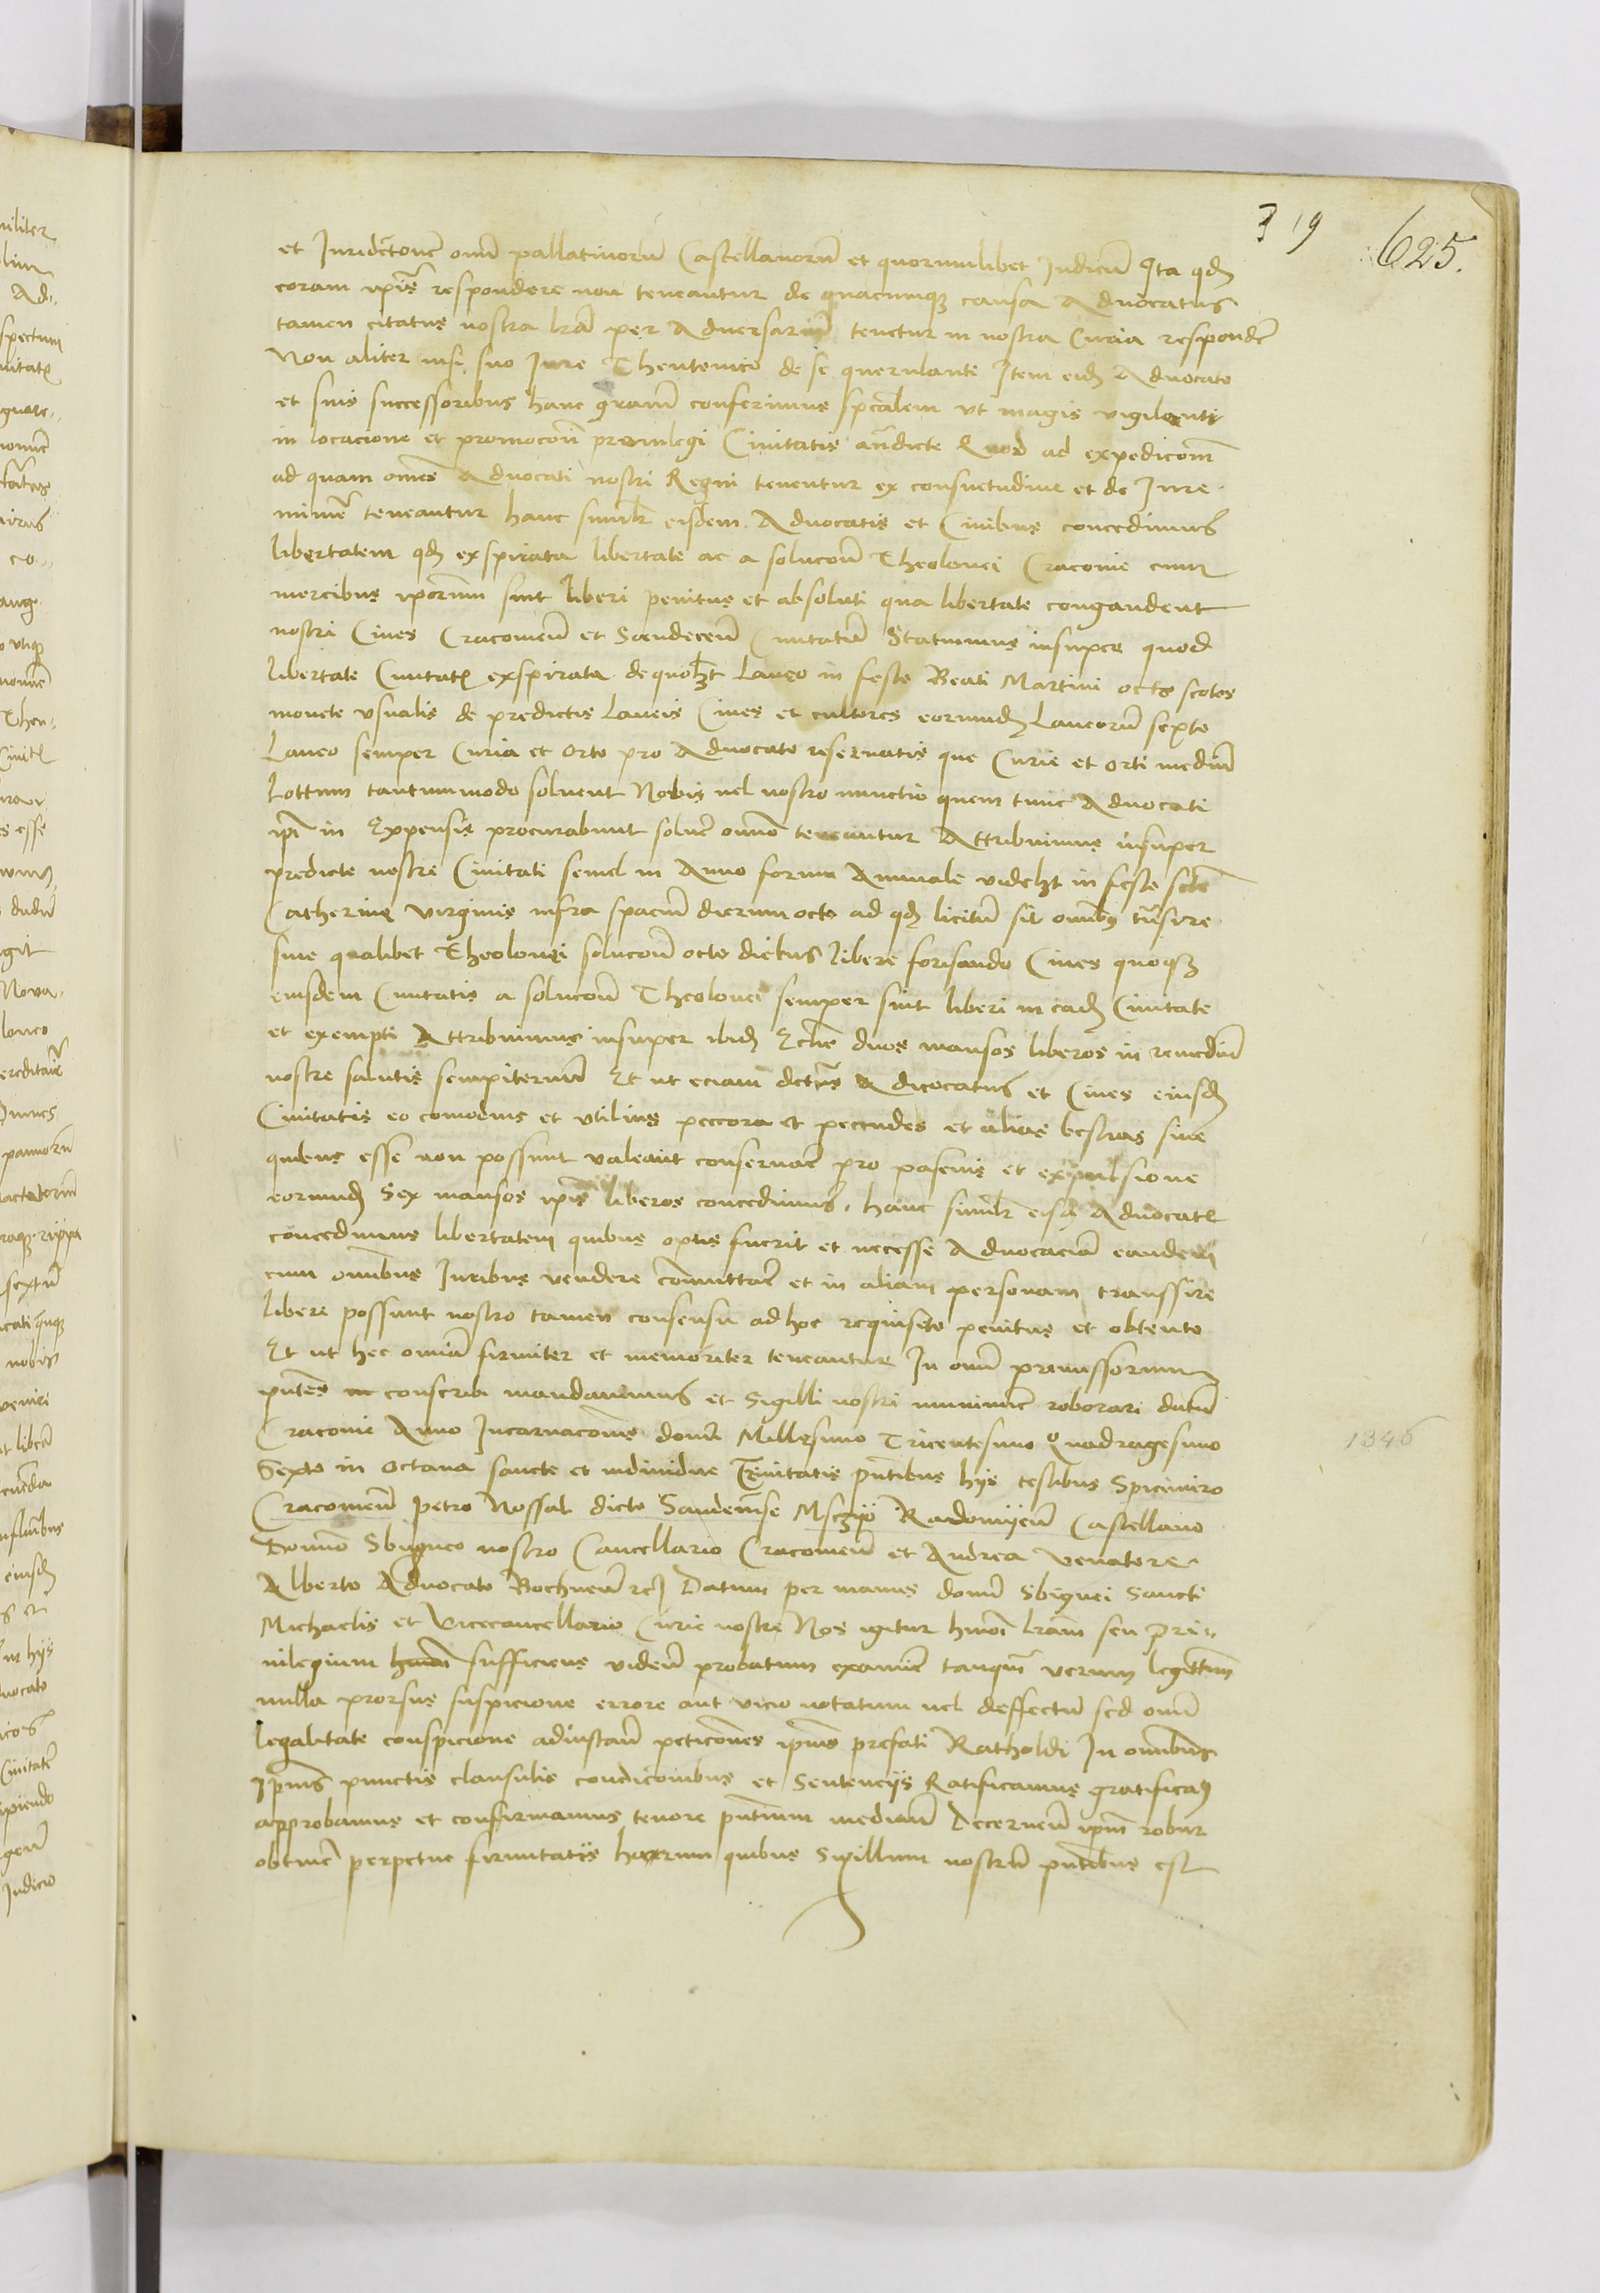 319 625.
et Iuridictione omnium pallatinorum Castellanorum et quorumlibet Iudicum Ita quod
coram ipsis respondere non teneantur de quacumque causa Advocatus
tamen citatus nostra litera per Adversarium tenetur in nostra Curia respondere
Non aliter nisi suo Iure Theutonico de se querulanti Item eidem Advocato
et suis successoribus hanc graciam conferimus specialem ut magis vigilent
in locacione et promocione privilegi Civitatis antedicte Quod ad expedicionem
ad quam omnes Advocati nostri Regni tenentur ex consuetudine et de Iure
minime teneantur hanc similiter eisdem Advocatis et Civibus concedimus
libertatem quod exspirata libertate ac a solucione Theolonei Cracovie cum
mercibus ipsorum sint liberi penitus et absoluti qua libertate congaudent
nostri Cives Cracoviensium et Sandecensium Civitatum Statuimus insuper quod
libertate Civitatis exspirata de quolibet Laneo in festo Beati Martini octo scotos
monete usualis de predictis Laneis Cives et cultores eorumdem Laneorum sexto
Laneo semper Curia et Orto pro Advocato reservatis que Curie et Orti medium
Lottum tantummodo solvent Nobis vel nostro nunctio quem tunc Advocati
ipsi in Expensis procurabunt solvere omnino teneantur Attribuimus insuper
predicte nostre Civitati semel in Anno forum Annuale videlicet in festo sancte
Catherine virginis infra spacium dierum octo ad quod licitum sit omnibus transire
sine qualibet Theolonei solucione octo diebus libere forisando Cives quoque
eiusdem Civitatis a solucione Theolonei semper sint liberi in eadem Civitate
et exempti Attribuimus insuper ibidem Ecclesie duos mansos liberos in remedium
nostre salutis sempiternum Et ut eciam dictus Advocatus et Cives eiusdem
Civitatis eo comodius et utilius peccora et pecudes et alias bestias sine
quibus esse non possunt valeant conservare pro pascuis et expulsione
eorumdem Sex mansos ipsis liberos concedimus. hanc similiter eisdem Advocatis
concedimus libertatem quibus optis fuerit et necesse Advocaciam eandem
cum omnibus Iuribus vendere commuttare et in aliam personam transsire
libere possunt nostro tamen consensu ad hoc requisito penitus et obtento
Et ut hec omnia firmiter et memoriter teneantur In omnium premissorum
presentes conscribi mandavimus et Sigilli nostri munimine roborari datum
Cracovie Anno Incarnacionis domini Millesimo Tricentesimo Quadragesimo
Sexto in Octava sancte et individue Trinitatis presentibus hijs testibus Spicimiro
Cracoviensium Petro Nossal dicto Sandensse Msczijo Radomijensium Castellano
Domino Sbigneo nostro Cancellario Cracoviensium et Andrea Venatore
Alberto Advocato Bochnensium etc Datum per manus domini Sbignei Sancti
Michaelis et Vicecancellario Curie nostre Nos igitur huiusmodi literam seu Pri-
vilegium sufficiens videntes probatum examine tanquam verum legittimum
nulla prorsus suspicione errore aut vicio notatum vel deffectum sed omni
legalitate conspicione ad instanciam peticiones ipsius prefati Ratholdi In omnibus
Ipsius punctis clausulis condicionibus et Sentencijs Ratificamus gratificamus
approbamus et confirmamus tenore presentium mediante Decernentes ipsum robur
obtinere perpetue firmitatis harum quibus Sigillum nostrum presentibus est
1346